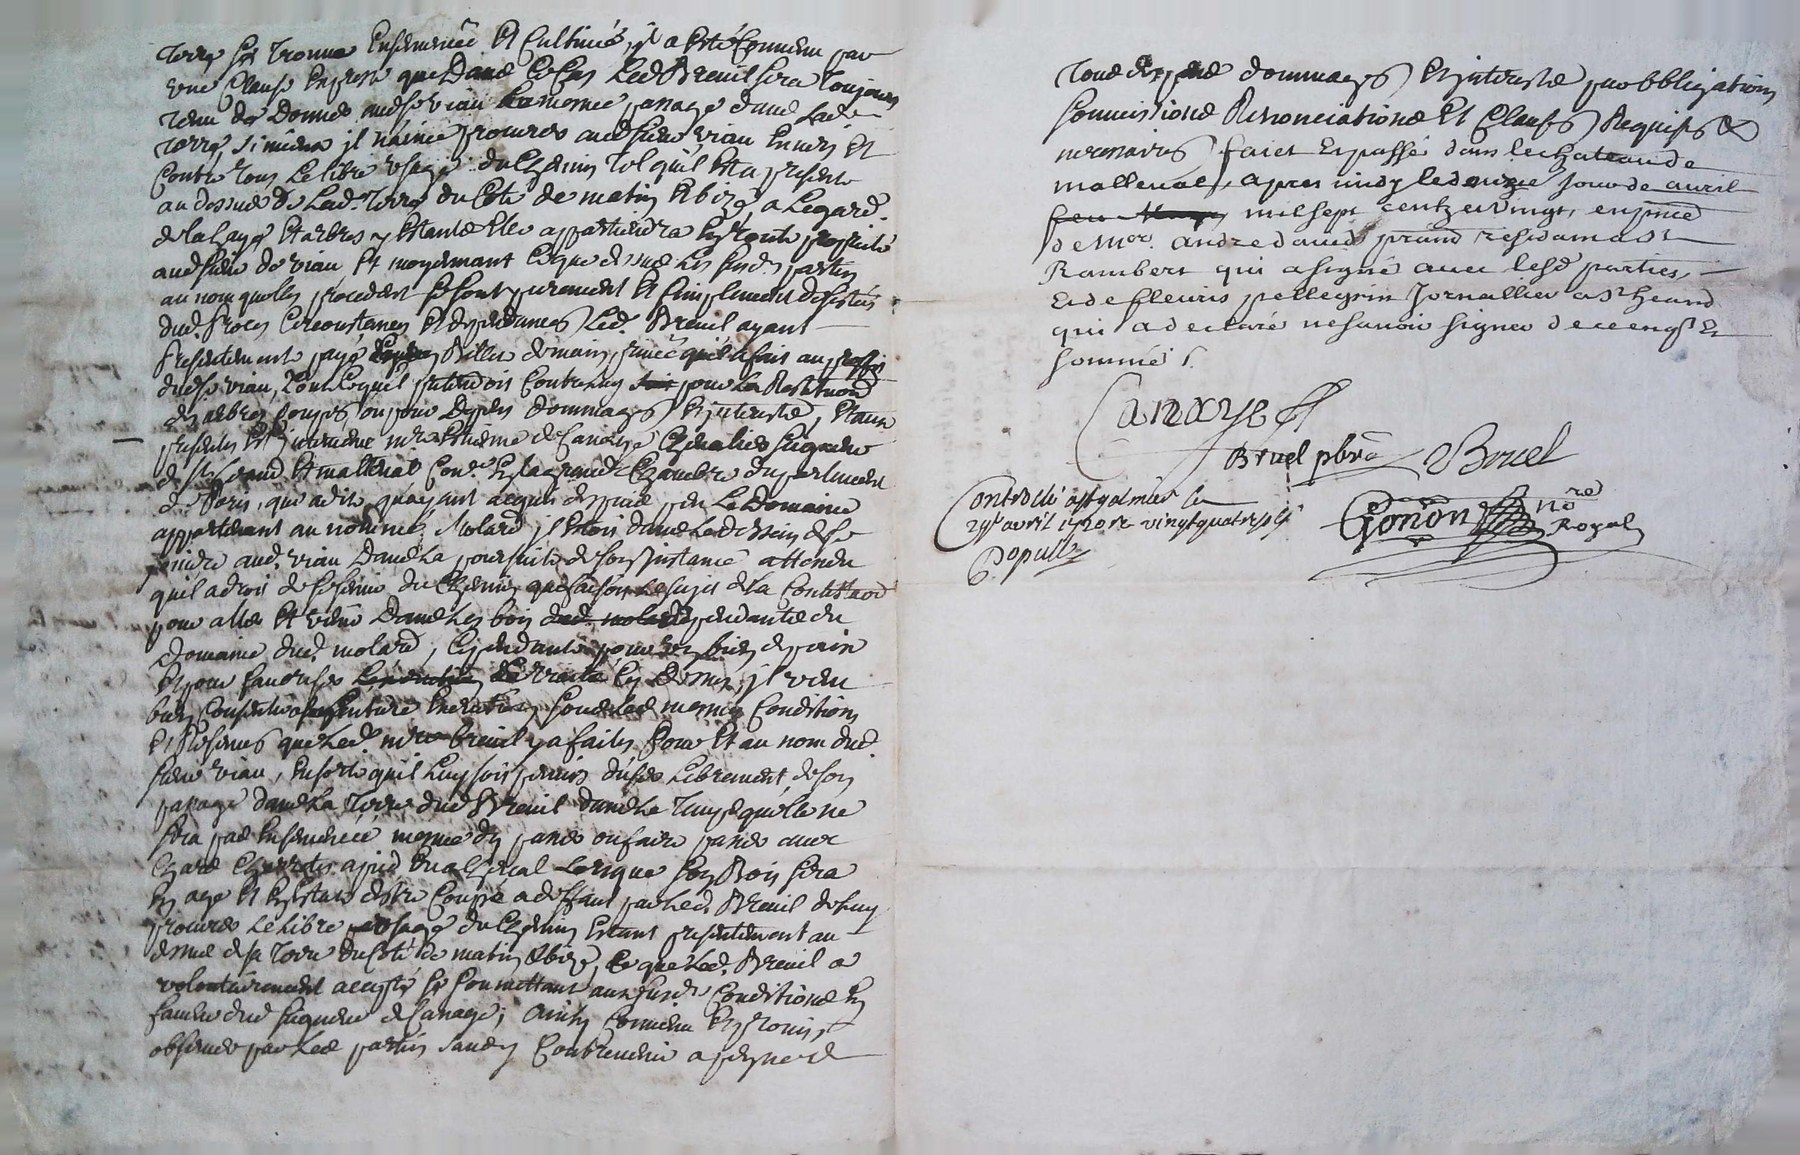 terre se trouve Ensemencée Et Cultivée, il a esté Convenu par
une Clause Expresse que Dans Ce Cas Led. Breuil sera Toujours
tenu de Donner aud. sr viau Le mesme passage dans Lad.
terre si mieux il n'aime procurer aud. sieur viau Envers Et
Contre tous Le libre usage du Chemin Tel qu'il Est a present
au dessus de Lad. Terre du Coté de matin Et bize, a Legard
de la haye Et arbres y Estants Elle appartiendra En toute proprieté
aud. sieur de viau Et moyennant Ce que dessus Les susd. parties
au nom quelles procedent se sont purement Et simplement desistées
dud. proces Circonstances Et dependances Led. Breuil ayant
presentement payé Billet de main privée qu'il a fait au proffit
dud. sr viau, tout Ce qu'il pretendoit Contre Luy pour La
des arbres Coupés ou pour Depens dommages Et interests, Et aux
presentes Est intervenu mre Estienne de Canaye Chevalier seigneur
de st heand Et malleval Conr. En la grande Chambre du parlement
de Paris, qui a dit qu'ayant acquis depuis peu Le Domaine
appartenant au nommé Molard, il Etoit dans Le dessein de se
joindre aud. viau Dans La poursuite de son jnstance attendu
qu'il a droit de se servir du Chemin que faisoit Le sujet de la
pour aller Et venir Dans Les bois dependants du
Domaine dud. molard, Cependant pour un bien de paix
Et pour favoriser Le traité Cy Dessus, jl veut
bien Consentir a sa Entiere Execution sous Les mesmes Conditions
Et Reserves que Led. mre breuil y a faites pour Et au nom dud.
sieur viau, En sorte qu'il Luy soit permis d'user Librement de son
passage dans La Terre dud. Breuil dans Le temps qu'elle ne
sera pas Ensemencée mesme d'y passer ou faire passer avec
Chars Charrettes a pied ou a Cheval Lorsque son Bois sera
En age Et En Estat d'estre Coupé a deffaut par Led. Breuil de Luy
procurer Le libre passage du Chemin Estant presentement au
dessus de sa Terre du Coté de matin Et bize, Ce que Led. Breuil a
volontairement accepté se soumettant aux susd. Conditions En
faveur dud. seigneur de Canaye; Ainsy Convenu Et promis
observer par Les parties sans y Contrevenir a peyne de
Tous depens dommages Et jnterests par obbligations
soumissions Renonciations Et Clauses Requises &
necessaires, faict Et passé dans le chateau de
malleval, apres midy le douzie. jour de avril
mil sept cent ze vingt, en pnce
de Mer. andre davids prand residam a st
Rambert qui a signé avec lesd. parties,
Et de fleuris pellegrin jornallier a St heand
qui a declaré ne savoir signer de ce enqs Et
sommé /.
Canaye
Bruel pbre Bruel
Controllé a st galmier le
29e avril 1720 Rx vingt quatre sols
Dopuis
Gonon nore
Royal